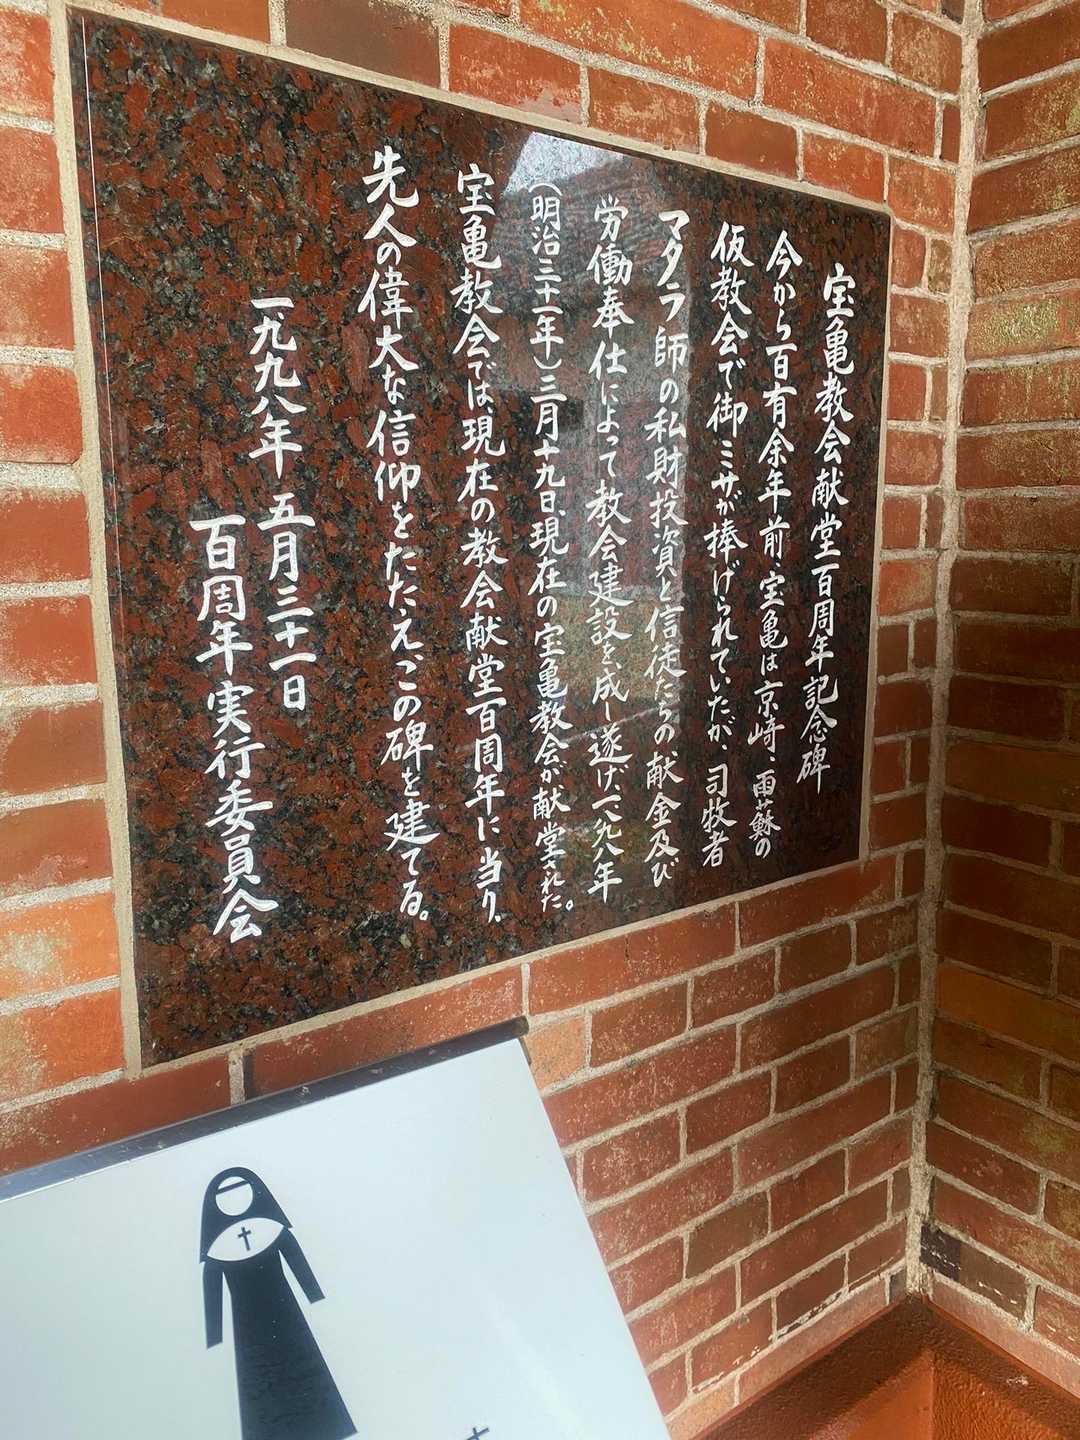 宝亀教会献堂百周年記念碑
今から百有余年前、宝亀は京崎、雨蘇の
仮教会で御ミサが捧げられていたが、司牧者
マタラ師の私財投資と信徒たちの献金及び
労働奉仕によって教会建設を成し遂げ、一八九八年
(明治三十一年)三月十九日、現在の宝亀教会が献堂された。
宝亀教会では、現在の教会献堂百周年に当り、
先人の偉大な信仰をたたえこの碑を建てる。
一九九八年 五月三十一日
百周年実行委員会